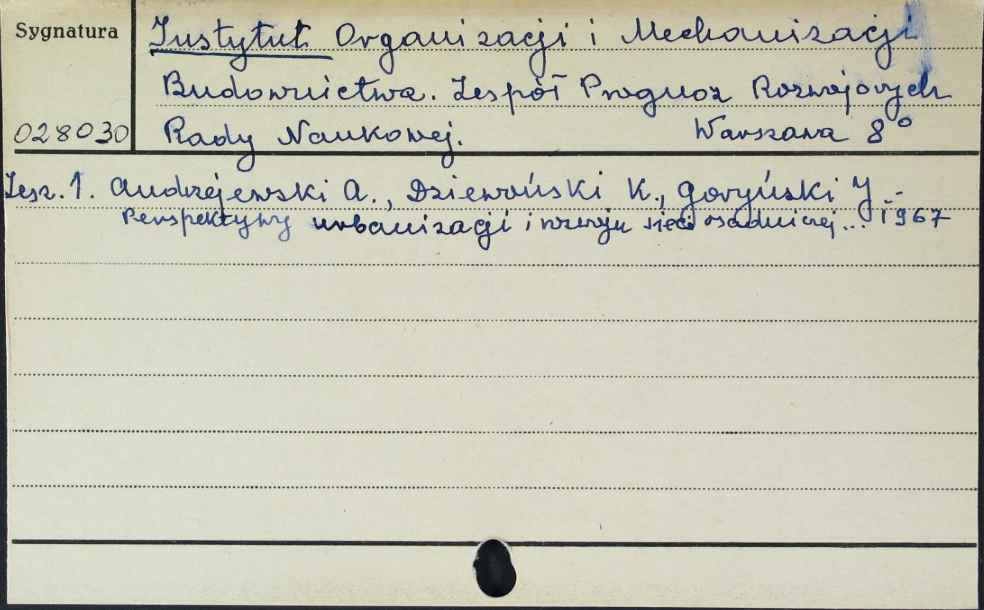 Sygnatura
Instytut Organizacji i Mechanizacji
Budownictwa. Zespół Prognoz Rozwojowych
028030 Rady Naukowej. Warszawa 8°
Zesz. 1. Andrzejewski A., Dziewoński K., Goryński J.-
Perspektywy urbanizacji i rozwoju sieci osadniczej... 1967